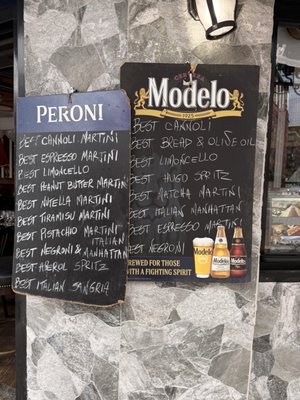 PERONI
BEST CANNOLI MARTINI
BEST ESPRESSO MARTINI
BEST LIMONCELLO
BEST PEANUT BUTTER MARTINI
BEST NUTELLA MARTINI
BEST TIRAMISU MARTINI
BEST PISTACHIO MARTINI
ITALIAN
BEST NEGRONI & MANHATTAN
BEST APEROL SPRITZ
BEST ITALIAN SANGRIA
Modelo
Modelo
1925
BEST CANNOLI
BEST BREAD & OLIVE OIL
BEST LIMONCELLO
BEST HUGO SPRITZ
BEST MATCHA MARTINI
BEST ITALIAN MANHATTAN
BEST ESPRESSO MARTINI
BEST NEGRONI
BREWED FOR THOSE
WITH A FIGHTING SPIRIT
Modelo
Modelo
Modelo